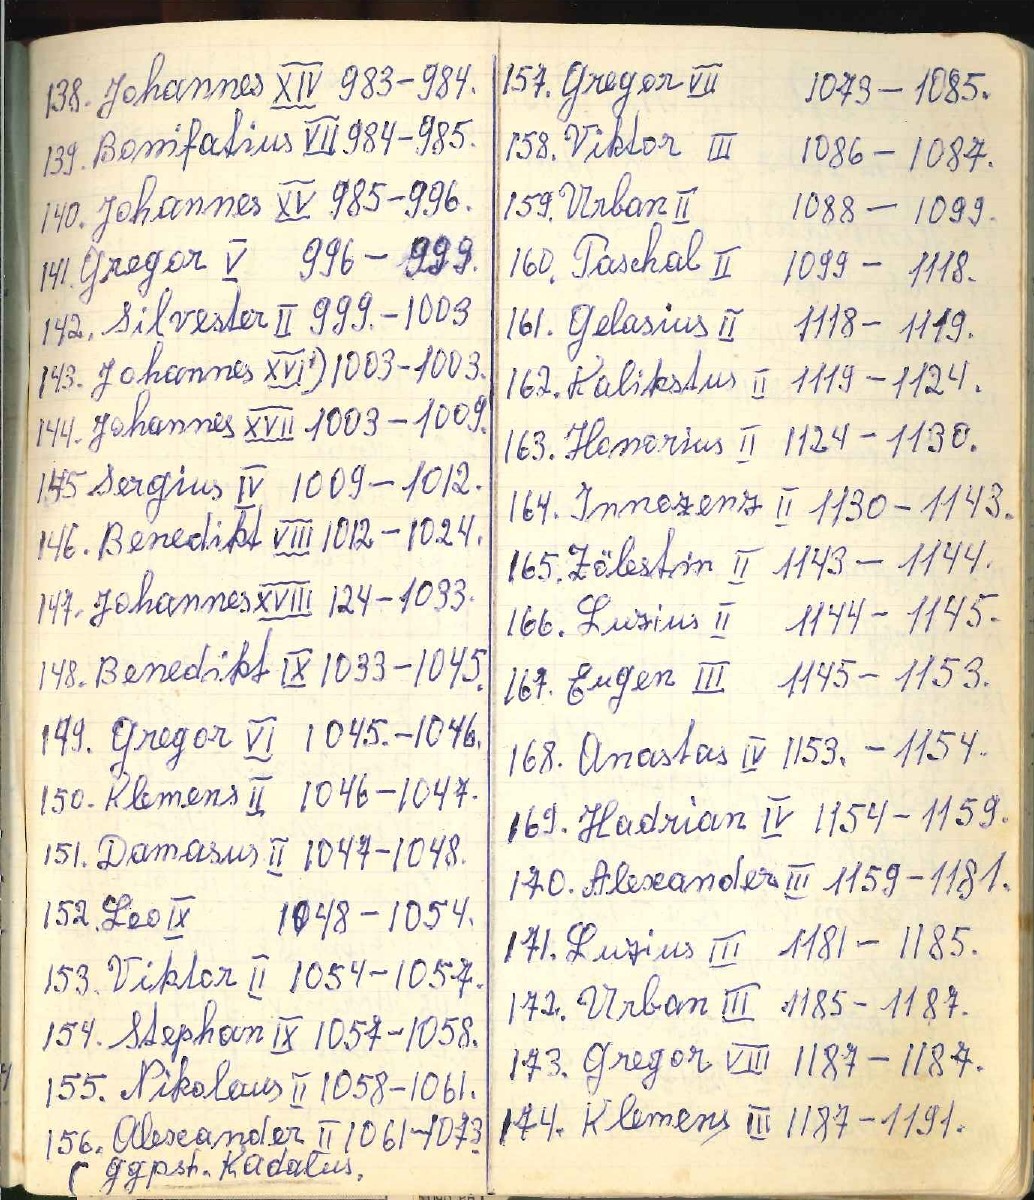 138. Johannes XIV 983-984.
139. Bonifatius VII 984-985.
140. Johannes XV 985-996.
141. Gregor V 996- 999.
142. Silvester II 999.-1003
143. Johannes XVI¹) 1003-1003.
144. Johannes XVII 1003-1009.
145 Sergius IV 1009-1012.
146. Benedikt VIII 1012-1024.
147. Johannes XVIII 124-1033.
148. Benedikt IX 1033-1045.
149. Gregor VI 1045.-1046.
150. Klemens II 1046-1047.
151. Damasus II 1047-1048.
152. Leo IX 1048-1054.
153. Viktor II 1054-1057.
154. Stephan IX 1057-1058.
155. Nikolaus II 1058-1061.
156. Alexander II 1061-1073
( ggpst. Kadalus.
157. Gregor VII 1073-1085.
158. Viktor III 1086-1087.
159. Urban II 1088-1099.
160. Paschal II 1099- 1118.
161. Gelasius II 1118-1119.
162. Kalikstus II 1119-1124.
163. Honorius II 1124-1130.
164. Innozenz II 1130-1143.
165. Zölestin II 1143-1144.
166. Luzius II 1144-1145.
167. Eugen III 1145-1153.
168. Anastas IV 1153. -1154.
169. Hadrian IV 1154-1159.
170. Alexander III 1159-1181.
171. Luzius III 1181-1185.
172. Urban III 1185-1187.
173. Gregor VIII 1187-1187.
174. Klemens III 1187-1191.